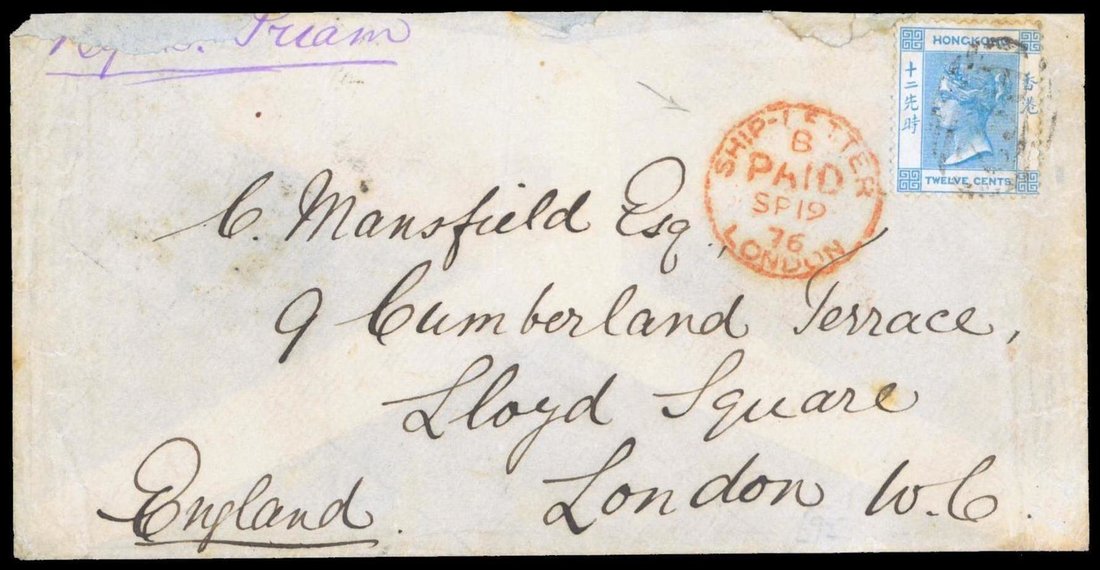 Priam
HONGKONG
十二先時
香港
TWELVE CENTS
SHIP-LETTER
B
PAID
SP 19
76
LONDON
C. Mansfield Esq.,
9 Cumberland Terrace,
Lloyd Square
London W.C.
England.